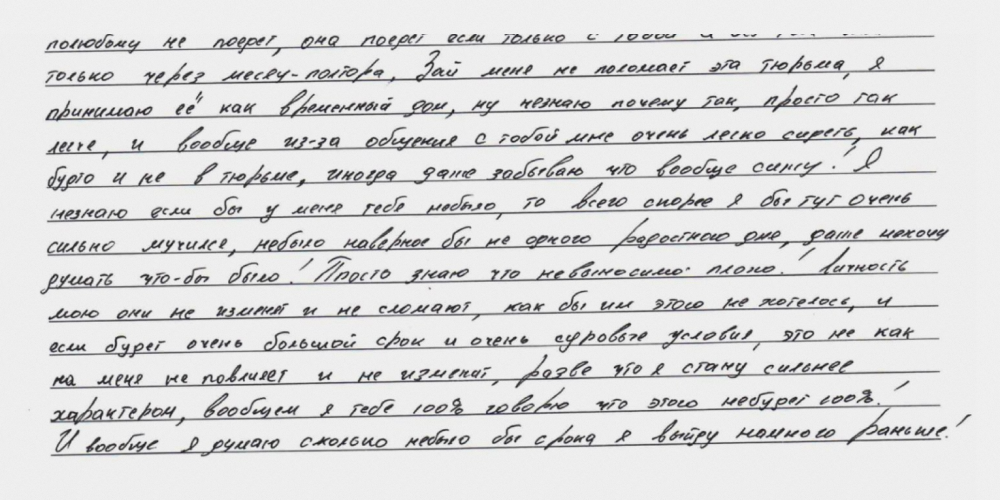 полюбому не поерет, она поерет если только с тобой и
только через месяц-полтора. Зай меня не поломает эта тюрьма, я
принимаю её как временный дом, ну незнаю почему так, просто так
легче, и вообще из-за общения с тобой мне очень легко сидеть, как
будто и не в тюрьме, иногда даже забываю что вообще сижу! Я
незнаю если бы у меня тебя небыло, то всего скорее я бы тут очень
сильно мучился, небыло наверное бы не одного радостного дня, даже нехочу
думать что-бы было! Просто знаю что невыносимо плохо! Личность
мою они не изменят и не сломают, как бы им этого не хотелось, и
если будет очень большой срок и очень суровые условия, это не как
на меня не повлияет и не изменит, разве что я стану сильнее
характером, вообщем я тебе 100% говорю что этого небудет 100%!
И вообще я думаю сколько небыло бы срока я выйду намного раньше!